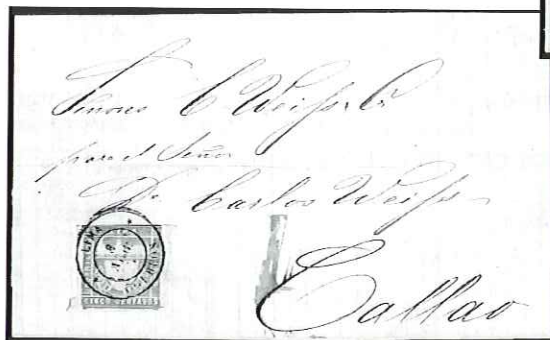 Señores C Weiss & Cº
para el Señor
Dn Carlos Weiss
Callao
LIMA
CINCO CENTAVOS